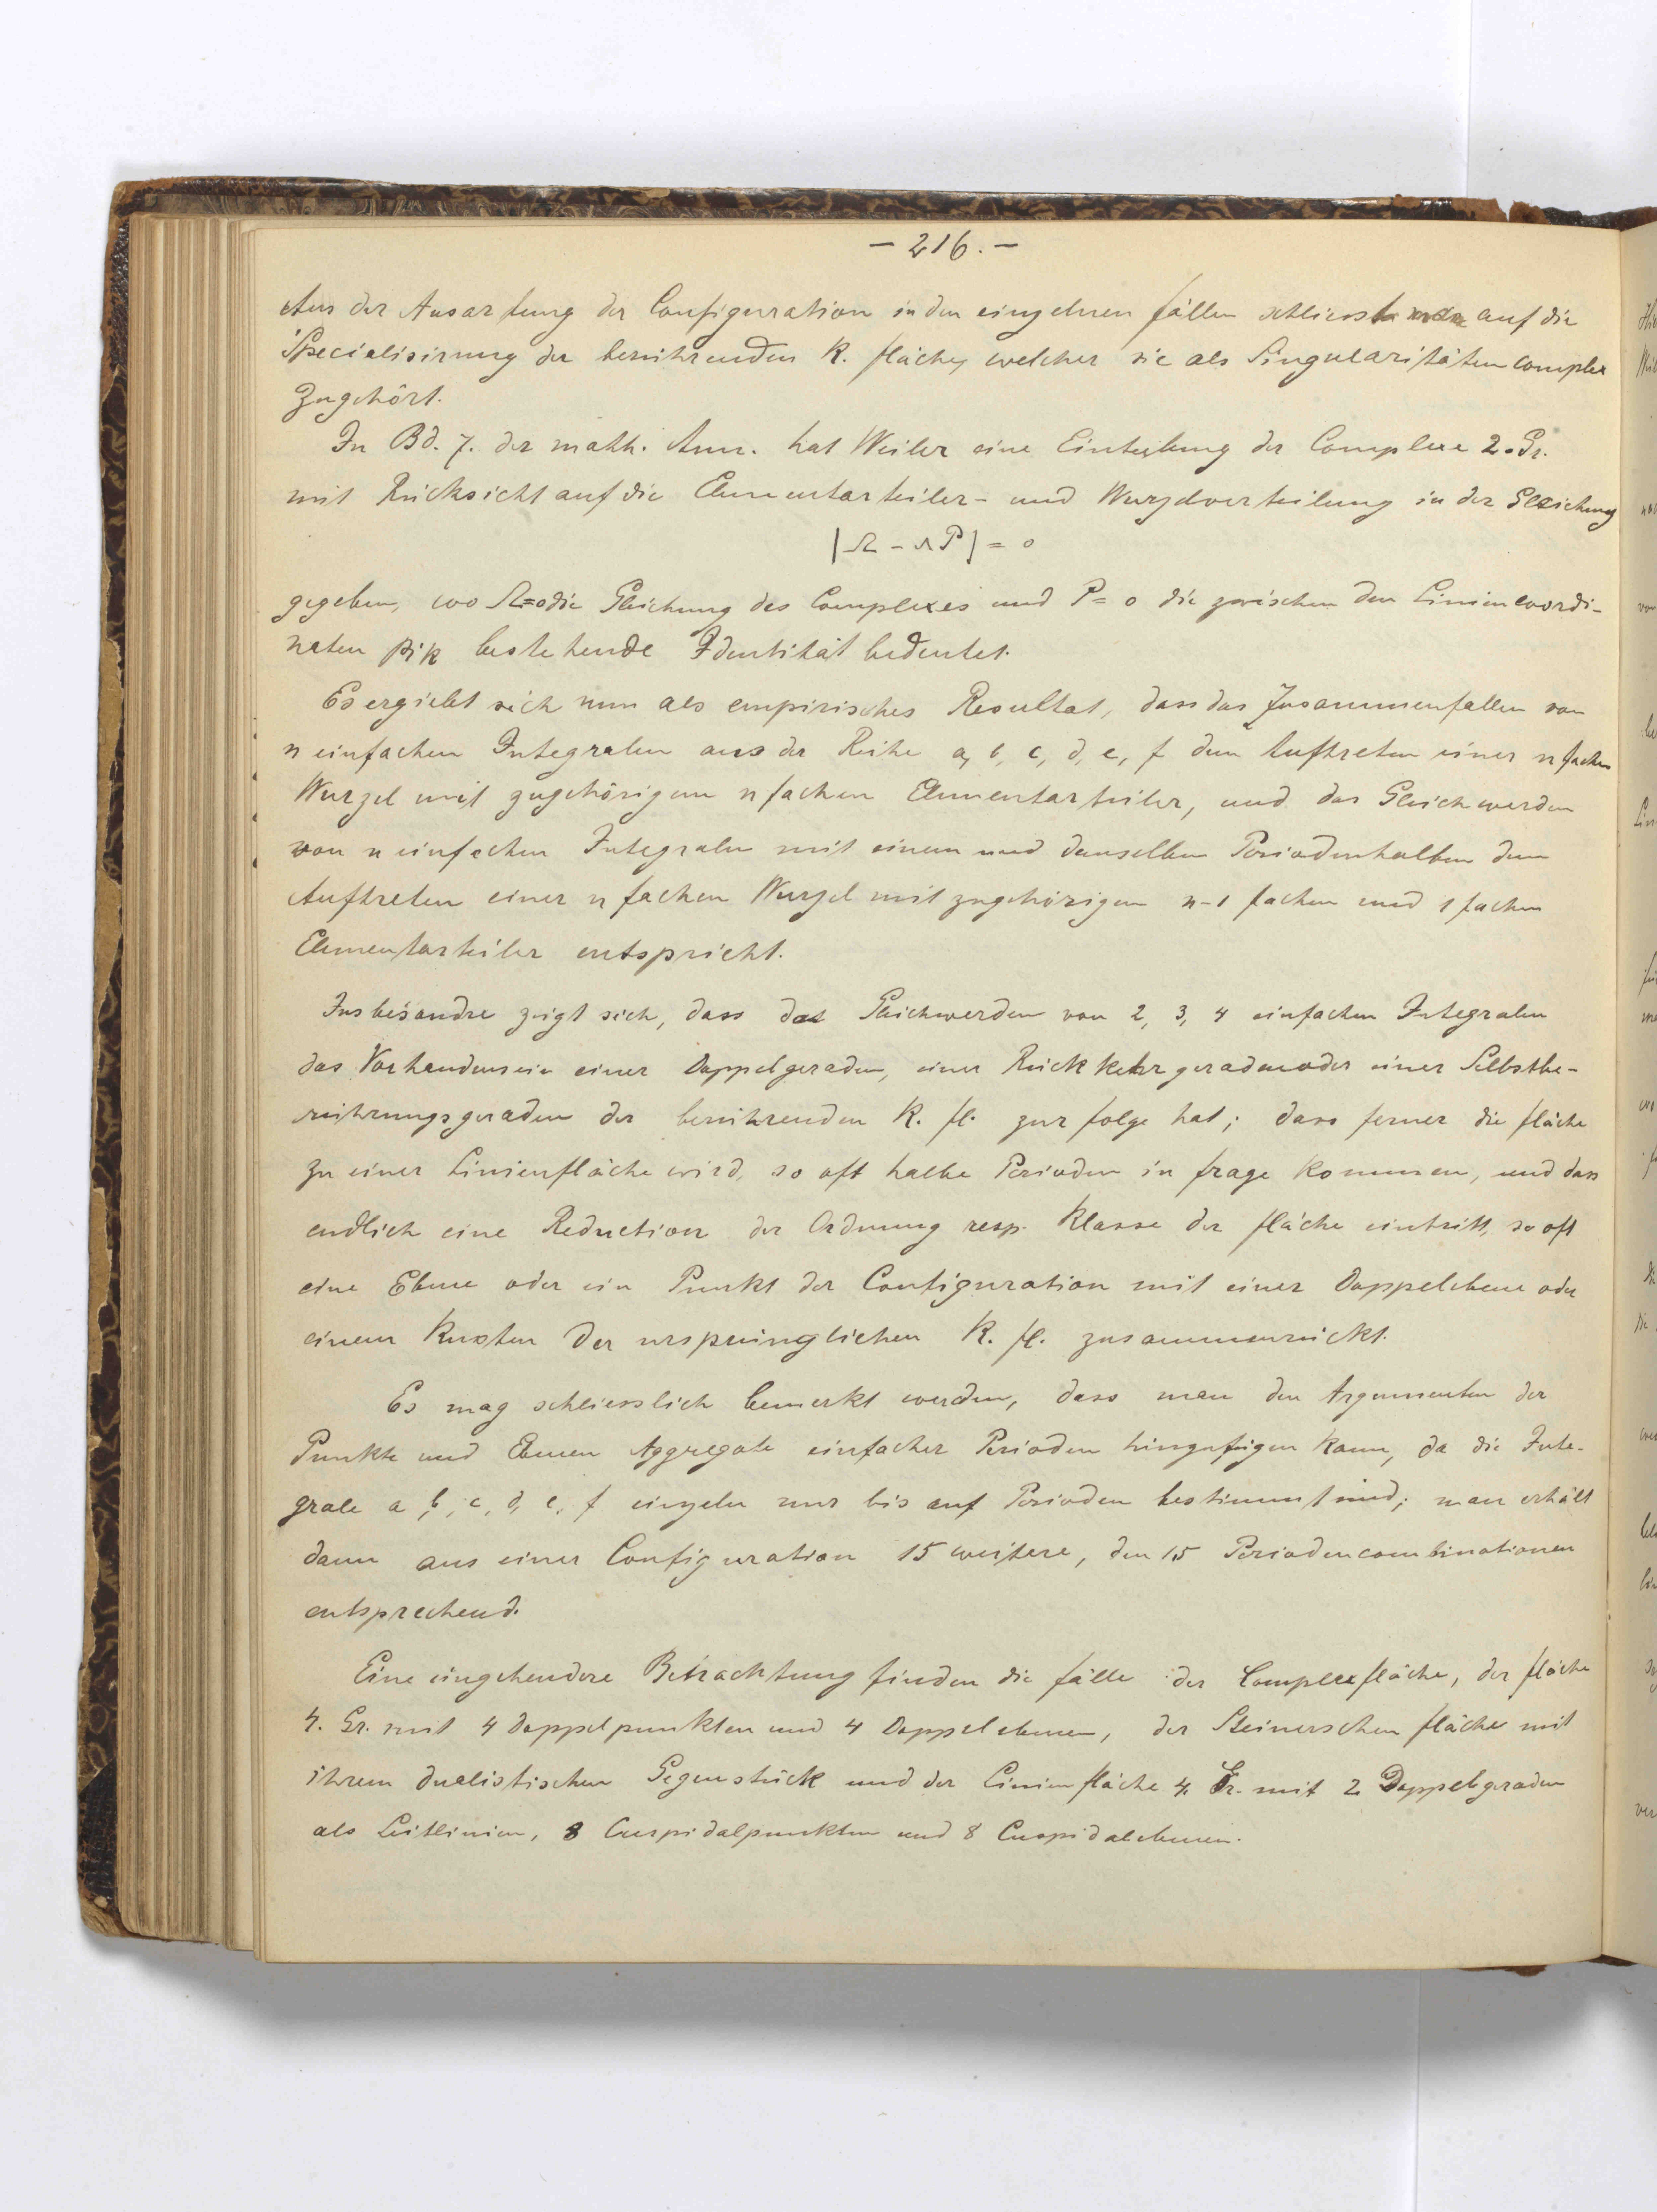 - 216. -
Aus der Ausartung der Configuration in den einzelnen fällen schliesst man auf die
Specialisirung der berührenden K. fläche, welcher sie als Singularitätencomplex
zugehört.
In Bd. 7. der math. Ann. hat Weiler eine Einteilung der Complexe 2. Gr.
mit Rücksicht auf die Elementarteiler- und Wurzelverteilung in der Gleichung
|Ω - λP| = 0
gegeben, wo Ω=0 die Gleichung des Complexes und P = 0 die zwischen den Liniencoordi-
naten pik bestehende Identität bedeutet.
Es ergiebt sich nun als empirisches Resultat, dass das Zusammenfallen von
n einfachen Integralen aus der Reihe a, b, c, d, e, f dem Auftreten einer n fachen
Wurzel mit zugehörigem n fachen Elementarteiler, und das Gleichwerden
von n einfachen Integralen mit einem und demselben Periodenhalben dem
Auftreten einer n fachen Wurzel mit zugehörigem n-1 fachen und 1 fachen
Elementarteiler entspricht.
Insbesondre zeigt sich, dass das Gleichwerden von 2, 3, 4 einfachen Integralen
das Vorhandensein einer Doppelgeraden, einer Rückkehrgeraden oder einer Selbstbe-
rührungsgeraden der berührenden K. fl. zur folge hat; dass ferner die fläche
zu einer Linienfläche wird, so oft halbe Perioden in frage kommen, und dass
endlich eine Reduction der Ordnung resp. Klasse der fläche eintritt, so oft
eine Ebene oder ein Punkt der Configuration mit einer Doppelebene oder
einem Knoten der ursprünglichen K. fl. zusammenrückt.
Es mag schliesslich bemerkt werden, dass man den Argumenten der
Punkte und Ebenen Aggregate einfacher Perioden hinzufügen kann, da die Inte-
grale a, b, c, d, e, f einzeln nur bis auf Perioden bestimmt sind; man erhält
dann aus einer Configuration 15 weitere, den 15 Periodencombinationen
entsprechend.
Eine eingehendere Betrachtung finden die fälle der Complexfläche, der fläche
4. Gr. mit 4 Doppelpunkten und 4 Doppelebenen, der Steinerschen fläche mit
ihrem dualistischen Gegenstück und der Linienfläche 4. Gr. mit 2 Doppelgeraden
als Leitlinien, 8 Cuspidalpunkten und 8 Cuspidalebenen.